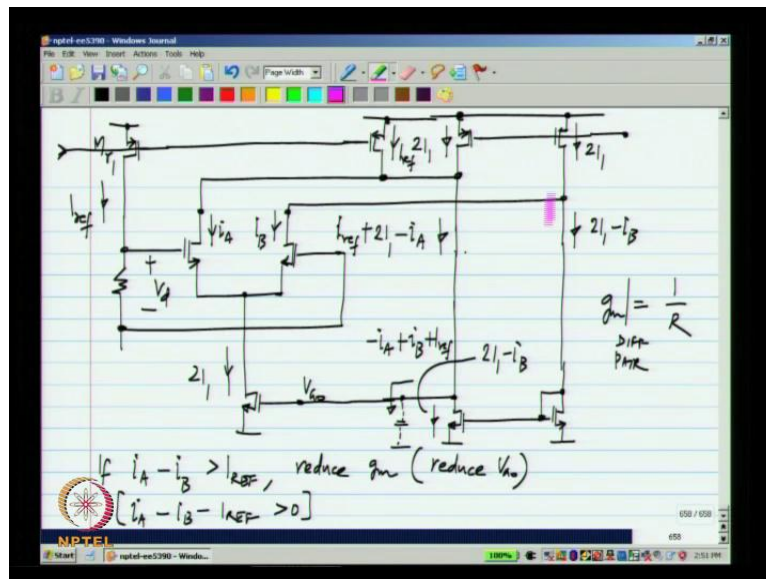 nptel-ee5390 - Windows Journal
File Edit View Insert Actions Tools Help
Page Width
B I
I_ref 2I_1
2I_1
I_ref
i_A
i_B
I_ref + 2I_1 - i_A
2I_1 - i_B
+
V_d
-
g_m| = 1/R
DIFF PAIR
-i_A + i_B + I_ref
2I_1 - i_B
2I_1
If i_A - i_B > I_REF, reduce g_m (reduce
[i_A - i_B - I_REF > 0]
NPTEL
658 / 658
658
Start nptel-ee5390 - Windo...
100%
2:51 PM